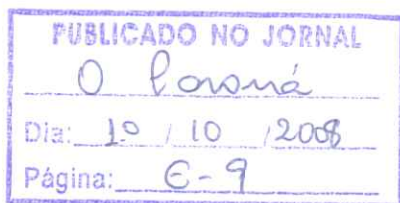 PUBLICADO NO JORNAL
O Paraná
Dia: 10 / 10 / 2008
Página: C-9